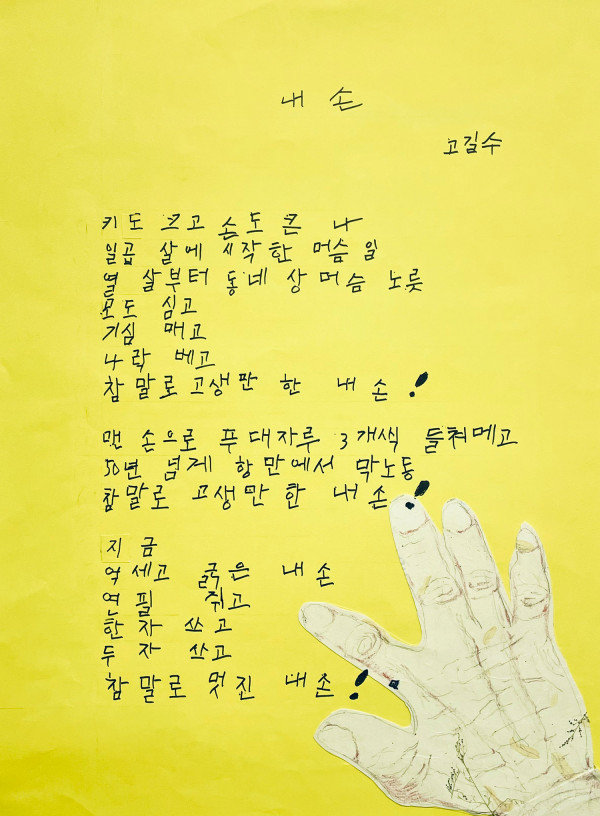 내 손
고길수
키도 크고 손도 큰 나
일곱 살에 시작한 머슴 일
열 살부터 동네 상머슴 노릇
모도 심고
기심 매고
나락 베고
참말로 고생만 한 내 손!
맨 손으로 푸대자루 3개씩 들쳐메고
50년 넘게 항만에서 막노동
참말로 고생만 한 내 손!
지금
억세고 굵은 내 손
연필 쥐고
한 자 쓰고
두 자 쓰고
참말로 멋진 내손!